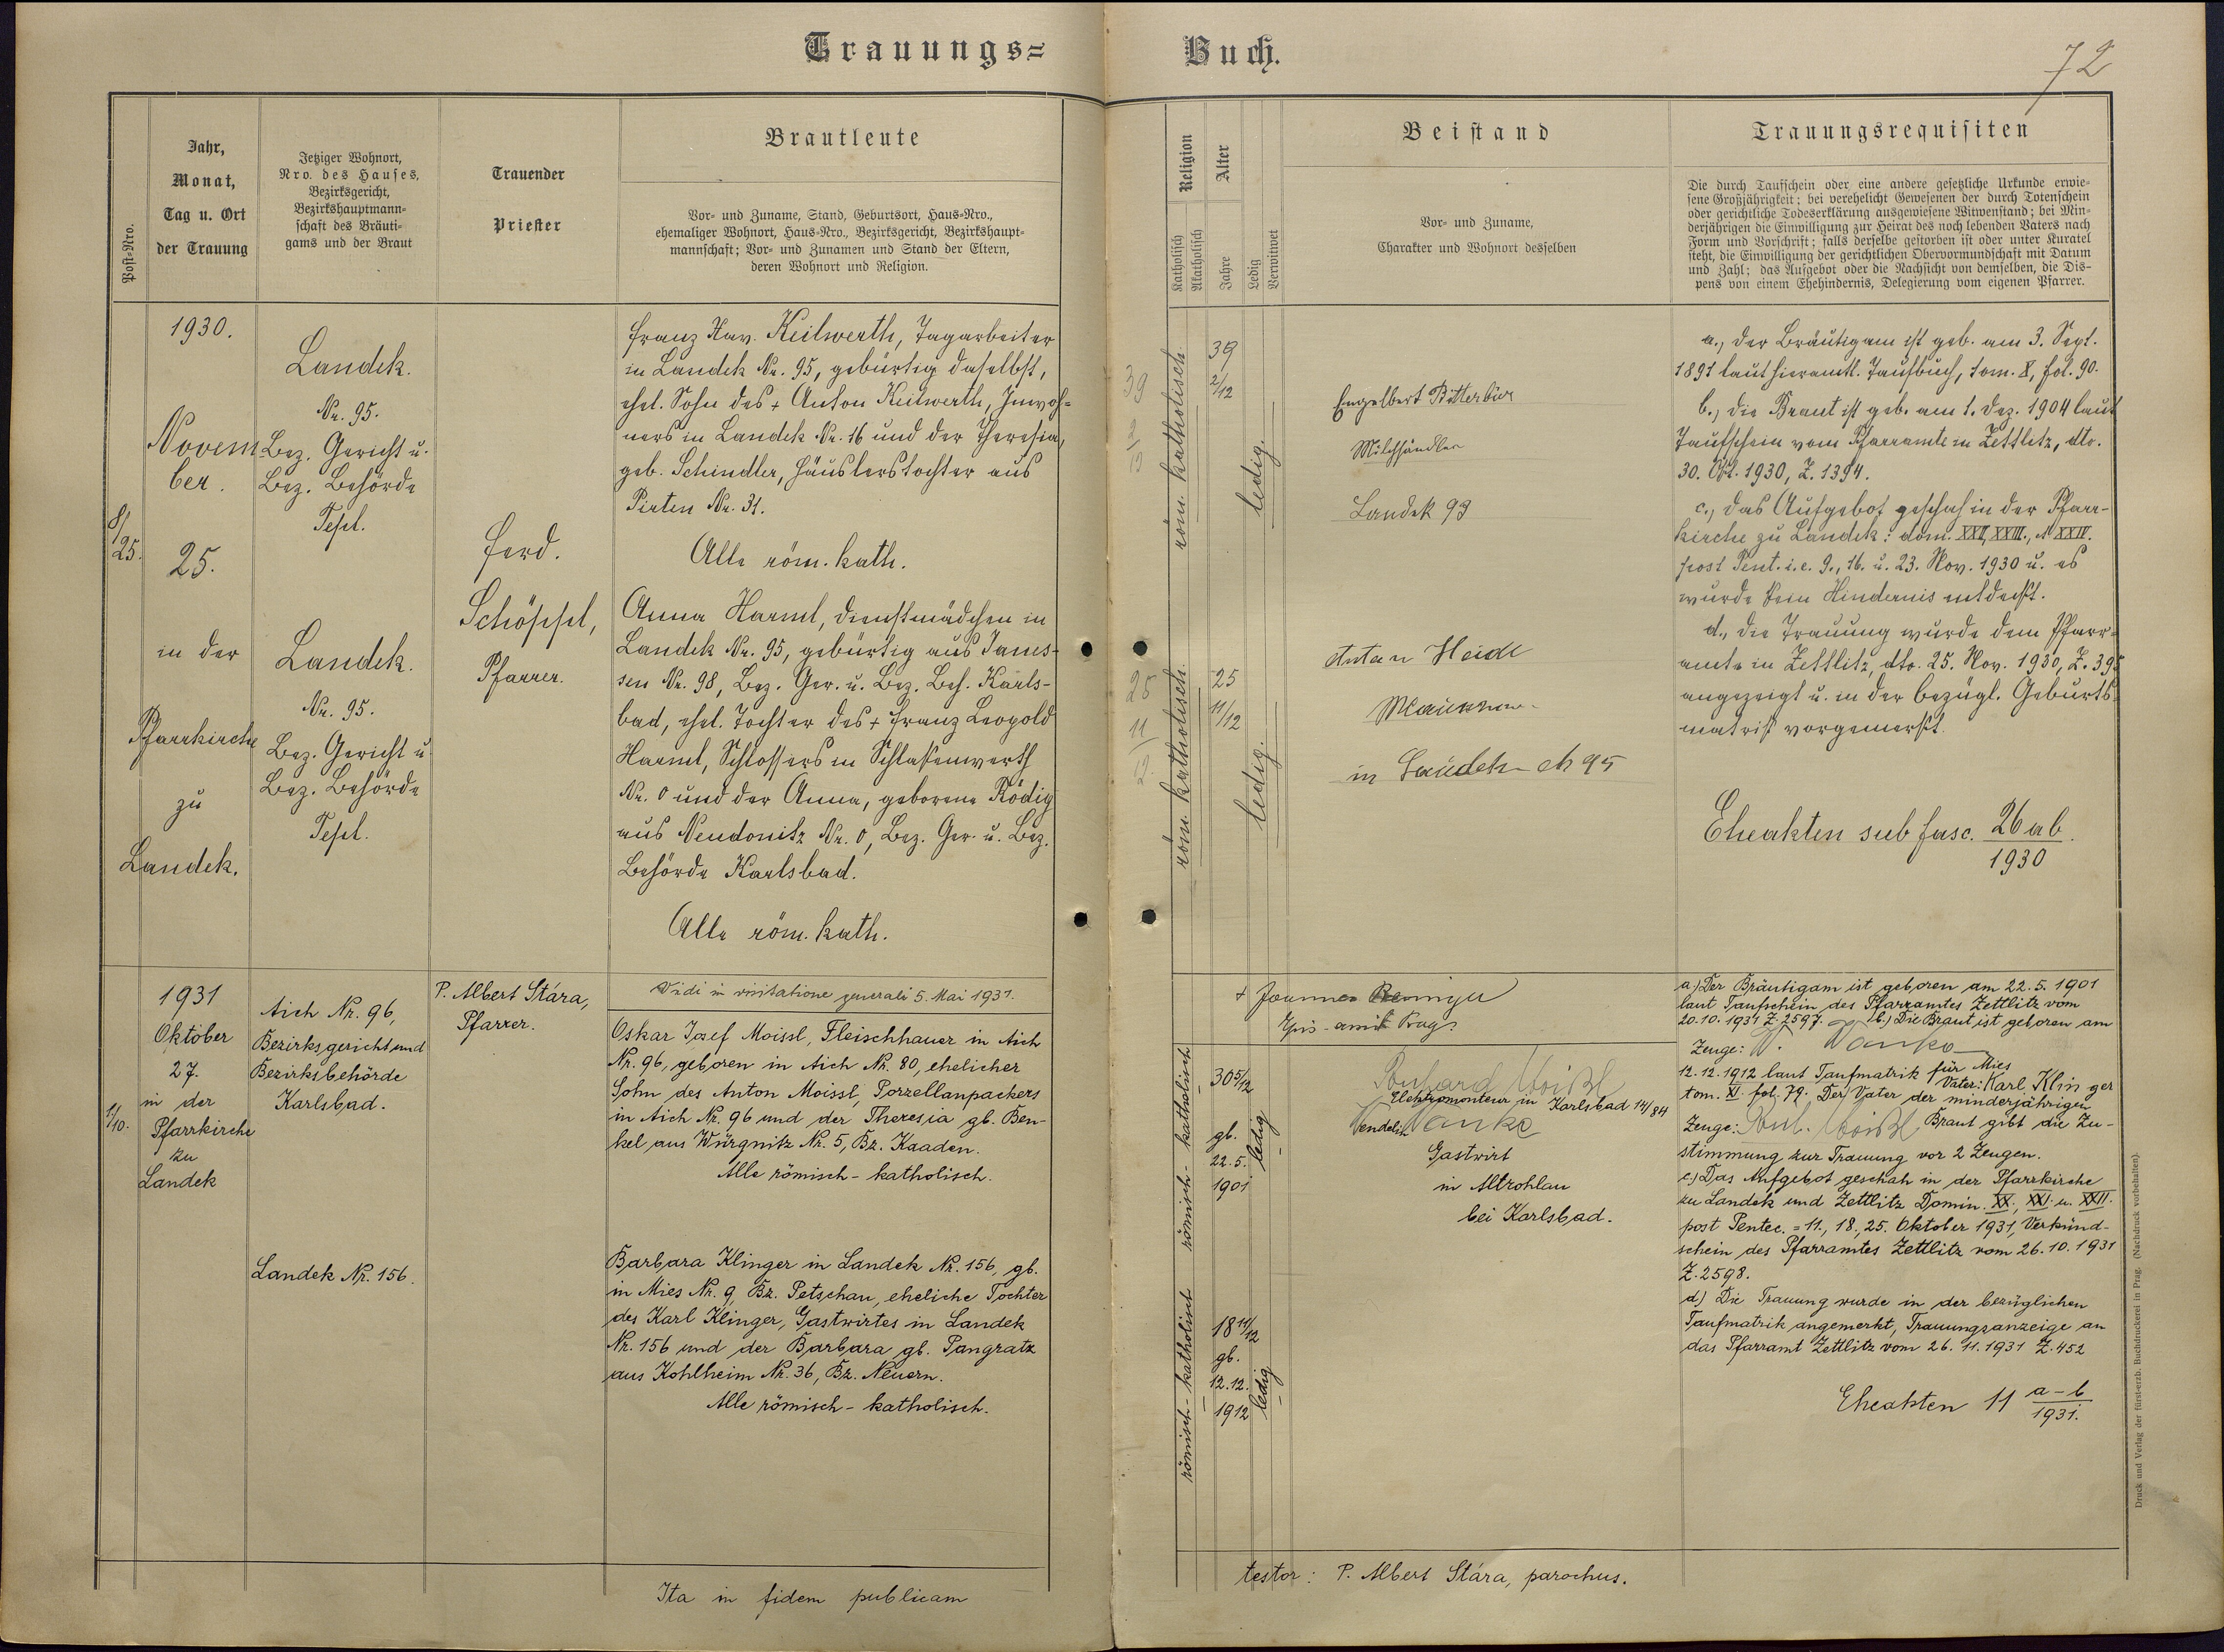 Trauungs=
Buch.
72
Post=Nro.
Jahr,
Monat,
Tag u. Ort
der Trauung
Jetziger Wohnort,
Nro. des Hauses,
Bezirksgericht,
Bezirkshauptmann=
schaft des Bräuti=
gams und der Braut
Trauender
Priester
Brautleute
Vor= und Zuname, Stand, Geburtsort, Haus=Nro.,
ehemaliger Wohnort, Haus=Nro., Bezirksgericht, Bezirkshaupt=
mannschaft; Vor= und Zunamen und Stand der Eltern,
deren Wohnort und Religion.
Religion
Katholisch
Akatholisch
Alter
Jahre
Ledig
Verwitwet
Beistand
Vor= und Zuname,
Charakter und Wohnort desselben
Trauungsrequisiten
Die durch Taufschein oder eine andere gesetzliche Urkunde erwie=
sene Großjährigkeit; bei verehelicht Gewesenen der durch Totenschein
oder gerichtliche Todeserklärung ausgewiesene Witwenstand; bei Min=
derjährigen die Einwilligung zur Heirat des noch lebenden Vaters nach
Form und Vorschrift; falls derselbe gestorben ist oder unter Kuratel
steht, die Einwilligung der gerichtlichen Obervormundschaft mit Datum
und Zahl; das Aufgebot oder die Nachsicht von demselben, die Dis=
pens von einem Ehehindernis, Delegierung vom eigenen Pfarrer.
8/25.
1930.
Novem
ber.
25.
in der
Pfarrkirche
zu
Landek.
Landek.
Nr. 95.
Bez. Gericht u.
Bez. Behörde
Tepl.
Landek.
Nr. 95.
Bez. Gericht u.
Bez. Behörde
Tepl.
Ferd.
Schöppl,
Pfarrer.
Franz Xav. Keilwerth, Tagarbeiter
in Landek Nr. 95, gebürtig daselbst,
ehel. Sohn des + Anton Keilwerth, Inwoh=
ners in Landek Nr. 16 und der Theresia,
geb. Schindler, Häuslerstochter aus
Pirten Nr. 31.
Alle röm. kath.
Anna Harml, Dienstmädchen in
Landek Nr. 95, gebürtig aus Janes-
sen Nr. 98, Bez. Ger. u. Bez. Beh. Karls-
bad, ehel. Tochter des + Franz Leopold
Harml, Schlossers in Schlackenwerth
Nr. 0 und der Anna, geborene Rödig
aus Neudonitz Nr. 0, Bez. Ger. u. Bez.
Behörde Karlsbad.
Alle röm. kath.
röm. katholisch.
39
2/12
ledig.
röm. katholisch.
25
11/12
ledig.
Engelbert Bitterbier
Milchhändler
Landek 93
Anton Heidl
in Landek 95
a., Der Bräutigam ist geb. am 3. Sept.
1891 laut hieramtl. Taufbuch, tom. X, fol. 90.
b., Die Braut ist geb. am 1. Dez. 1904 laut
Taufschein vom Pfarramte in Zettlitz, dto.
30. Okt. 1930, Z. 1394.
c., Das Aufgebot geschah in der Pfarr-
kirche zu Landek: dom. XXII, XXIII., et XXIV.
post Pent. i. e. 9., 16. u. 23. Nov. 1930 u. es
wurde kein Hindernis entdeckt.
d., Die Trauung wurde dem Pfarr-
amte in Zettlitz, dto. 25. Nov. 1930, Z. 395
angezeigt u. in der bezügl. Geburts-
matrik vorgemerkt.
Eheakten sub fasc. 26 ab
1930
1/10.
1931
Oktober
27.
in der
Pfarrkirche
zu
Landek
Aich Nr. 96,
Bezirksgericht und
Bezirksbehörde
Karlsbad.
Landek Nr. 156.
P. Albert Stára,
Pfarrer.
Vidi in visitatione generali 5. Mai 1931.
Oskar Josef Moissl, Fleischhauer in Aich
Nr. 96, geboren in Aich Nr. 80, ehelicher
Sohn des Anton Moissl, Porzellanpackers
in Aich Nr. 96 und der Theresia gb. Ben-
kel aus Würgnitz Nr. 5, Bz. Kaaden.
Alle römisch-katholisch.
Barbara Klinger in Landek Nr. 156, gb.
in Mies Nr. 9, Bz. Petschau, eheliche Tochter
des Karl Klinger, Gastwirtes in Landek
Nr. 156 und der Barbara gb. Pangratz
aus Kohlheim Nr. 36, Bz. Neuern.
Alle römisch-katholisch.
römisch-katholisch
30 5/12
gb.
22.5.
1901
ledig
römisch-katholisch
18 11/12
gb.
12.12.
1912
ledig
+ Joannes Remiger
Elektromonteur in Karlsbad 14/84
Wendelin Wanke
Gastwirt
in Altrohlau
bei Karlsbad.
a) Der Bräutigam ist geboren am 22.5.1901
laut Taufschein des Pfarramtes Zettlitz vom
20.10.1931 Z. 2597. b.) Die Braut ist geboren am
Zeuge: W. Wanke
12.12.1912 laut Taufmatrik für Mies
Vater: Karl Klinger
tom. XI. fol. 79. Der Vater der minderjährigen
Zeuge: Moißl Braut gibt die Zu-
stimmung zur Trauung vor 2 Zeugen.
c.) Das Aufgebot geschah in der Pfarrkirche
zu Landek und Zettlitz Domin. XX., XXI. u. XXII.
post Pentec. = 11., 18., 25. Oktober 1931, Verkünd-
schein des Pfarramtes Zettlitz vom 26.10.1931
Z. 2598.
d.) Die Trauung wurde in der bezüglichen
Taufmatrik angemerkt, Trauungsanzeige an
das Pfarramt Zettlitz vom 26.11.1931 Z. 452
Eheakten 11 a-b
1931.
Ita in fidem publicam
testor: P. Albert Stára, parochus.
Druck und Verlag der fürst-erzb. Buchdruckerei in Prag. (Nachdruck vorbehalten).